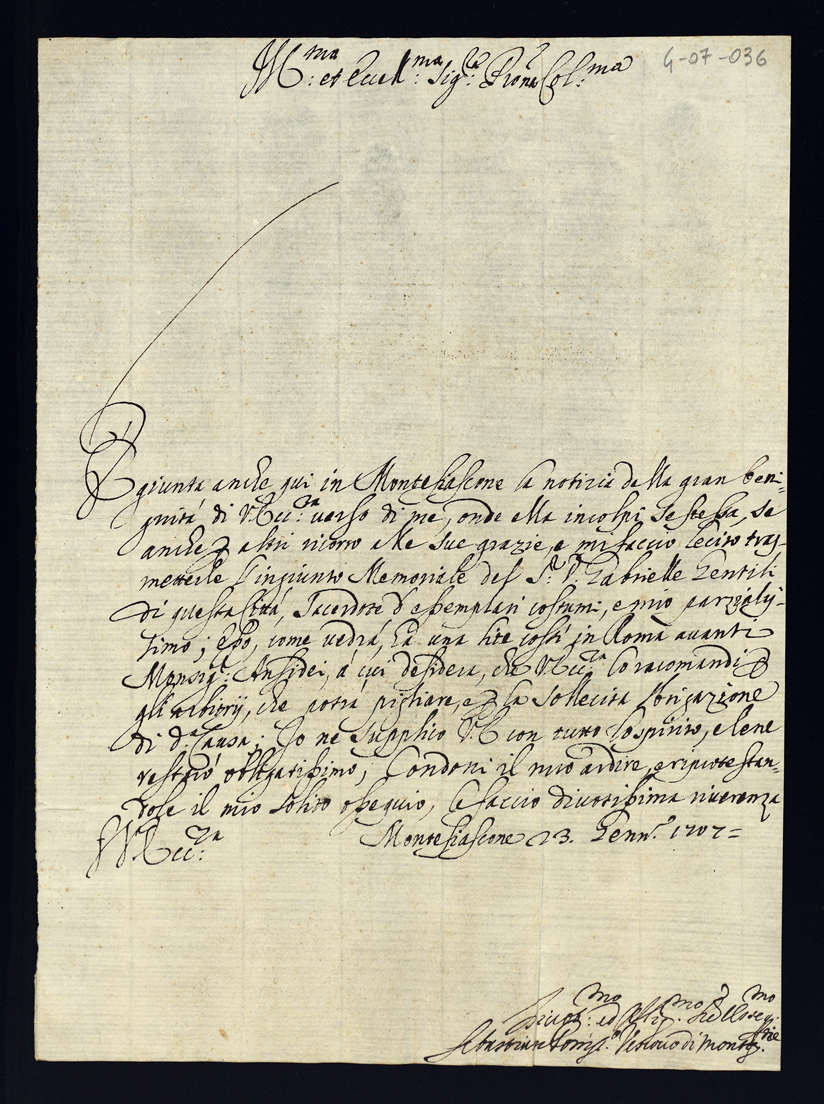 Ill.ma et Ecc.ma Sig.ra P'rona Col.ma
G-07-036
È giunta anche qui in Montefiascone la notizia della gran beni=
gnità di V. Ecc.za verso di me, onde ella incolpi se stessa, se
anche altri ricorro alle sue grazie, e mi faccio lecito tras=
metterle l'ingiunto Memoriale del S.r D. Gabrielle Gentili
di questa Città, Sacerdote d'essemplari costumi, e mio parzialis=
simo; come vedrà, hà una lite costì in Roma avanti
Monsig.r Ansidei, à cui desidera, che V. Ecc.za lo racomandi p
gli arbitrij, che potrà pigliare, e p la sollecita
di d.a Causa; Io ne supplico V. E. con tutto lo spirito, e le ne
restarò obligatissimo; Condoni il mio ardire, e riprotestan=
dole il mio solito ossequio, le faccio divotissima riverenza
V. Ecc.za Montefiascone 23. Genn.o 1707=
Divot.mo ed Oblig.mo Se
Sebastiano Vescovo di Montef.ne